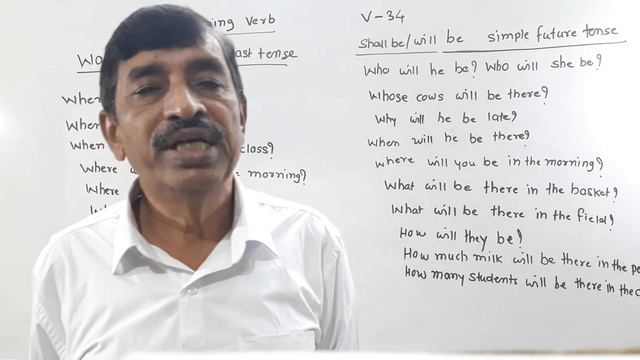 ing Verb
Wo ast tense
When
When
When class?
Where morning?
Where
V-34
Shall be/will be simple future tense
Who will he be? Who will she be?
Whose cows will be there?
Why will he be late?
When will he be there?
Where will you be in the morning?
What will be there in the basket?
What will be there in the field?
How will they be?
How much milk will be there in the pe
How many students will be there in the c